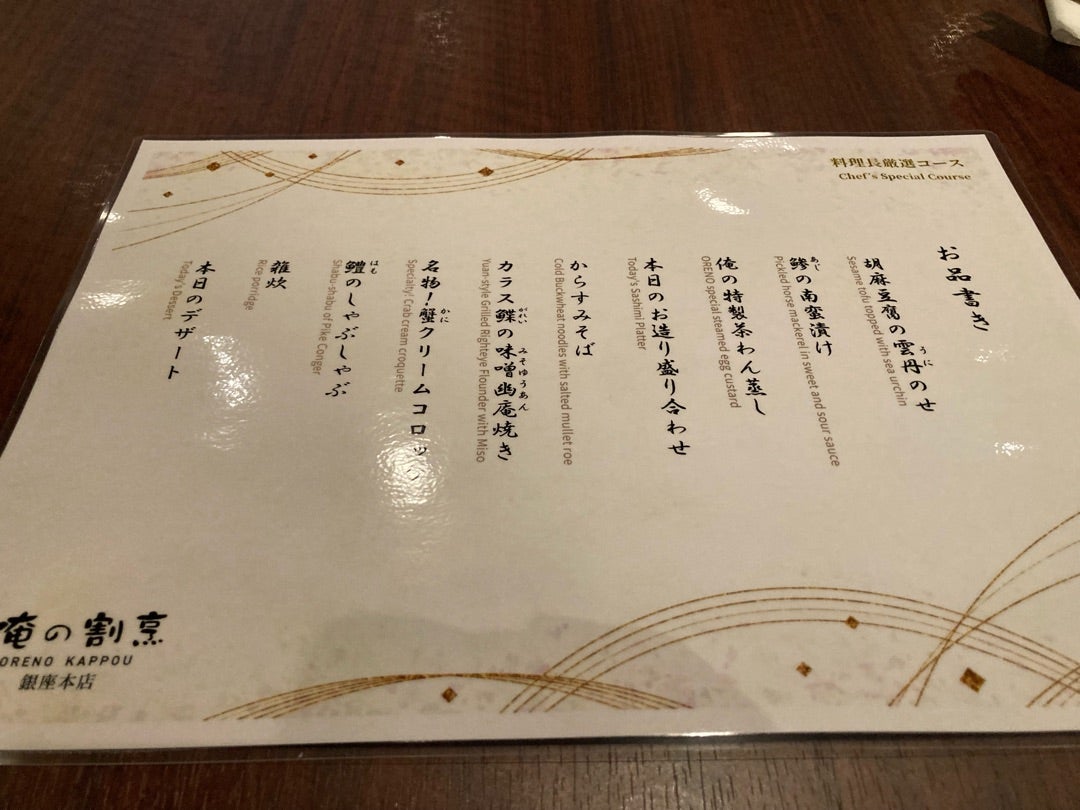 料理長厳選コース
Chef's Special Course
お品書き
胡麻豆腐の雲丹のせ
うに
Sesame tofu topped with sea urchin
鯵の南蛮漬け
あじ
Pickled horse mackerel in sweet and sour sauce
俺の特製茶わん蒸し
ORENO special steamed egg custard
本日のお造り盛り合わせ
Today's Sashimi Platter
からすみそば
Cold Buckwheat noodles with salted mullet roe
カラス鰈の味噌幽庵焼き
がれい みそゆうあん
Yuan-style Grilled Righteye Flounder with Miso
名物！蟹クリームコロッケ
かに
Specialty! Crab cream croquette
鱧のしゃぶしゃぶ
はも
Shabu-shabu of Pike Conger
雑炊
Rice porridge
本日のデザート
Today's Dessert
俺の割烹
ORENO KAPPOU
銀座本店